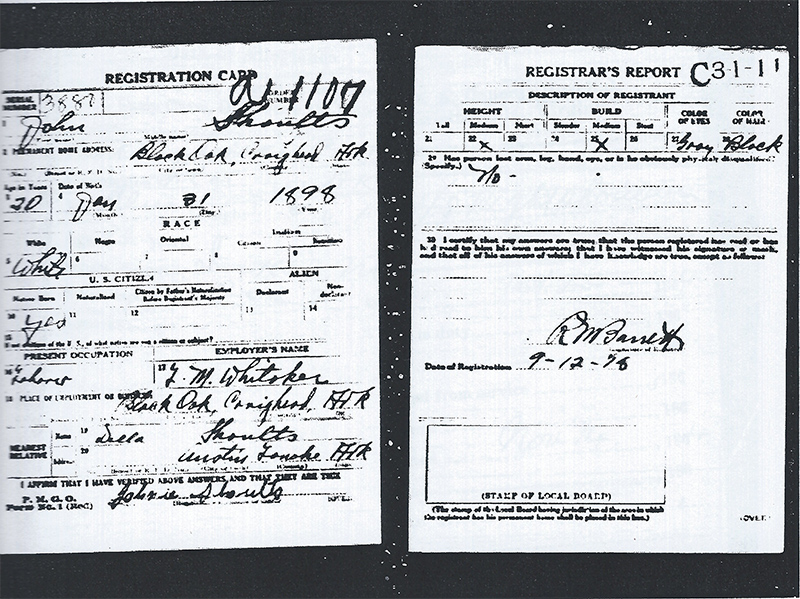 REGISTRATION CARD
SERIAL NUMBER 388 ORDER NUMBER 1107
1 John Shoults
2 PERMANENT HOME ADDRESS:
Black Oak, Craighead Ark
Age in Years Date of Birth
3 20 4 Jan 31 1898
(Month) (Day) Year
RACE
White Negro Oriental Indian
Citizen Noncitizen
5 White 6 7 8 9
U. S. CITIZEN ALIEN
Native Born Naturalized Citizen by Father's Naturalization Before Registrant's Majority Declarant Non-declarant
10 Yes 11 12 13 14
15 If not a citizen of the U. S., of what nation are you a citizen or subject?
PRESENT OCCUPATION EMPLOYER'S NAME
16 Laborer 17 J. M. Whitaker
18 PLACE OF EMPLOYMENT OR BUSINESS
Black Oak, Craighead, Ark
NEAREST RELATIVE
Name 19 Della Shoults
Address 20 Austin Lonoke Ark
I AFFIRM THAT I HAVE VERIFIED ABOVE ANSWERS AND THAT THEY ARE TRUE
P. M. G. O.
Form No. 1 (Red) Johnie Shoults (OVER)
REGISTRAR'S REPORT C31-11
DESCRIPTION OF REGISTRANT
HEIGHT BUILD COLOR OF EYES COLOR OF HAIR
Tall Medium Short Slender Medium Stout
21 22 x 23 24 25 x 26 27 Gray 28 Black
29 Has person lost arm, leg, hand, eye, or is he obviously physically disqualified?
(Specify.) No -
30 I certify that my answers are true; that the person registered has read or has
had read to him his own answers; that I have witnessed his signature or mark,
and that all of his answers of which I have knowledge are true, except as follows:
R M Barrett
Date of Registration 9-12-18
(STAMP OF LOCAL BOARD)
(The stamp of the Local Board having jurisdiction of the area in which
the registrant has his permanent home shall be placed in this box.)
(OVER)